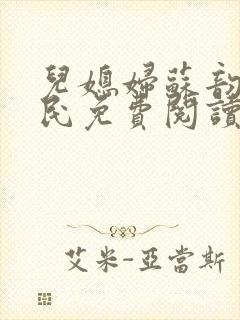 兒媳婦蘇韵
民免費閱讀
艾米-亞當斯